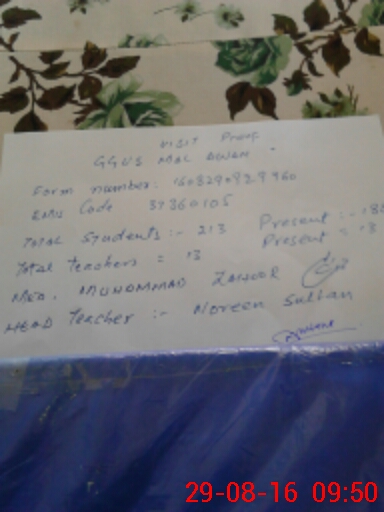 VISIT Proof
GGUS MAL AWAN.
Form number: 1608290829960
EMIS Code 37360105
Total Students:- 213 Present:- 180
Total teachers = 13 Present = 13
MEA. MUHAMMAD ZAHOOR
HEAD Teacher :- Noreen Sultan
29-08-16 09:50